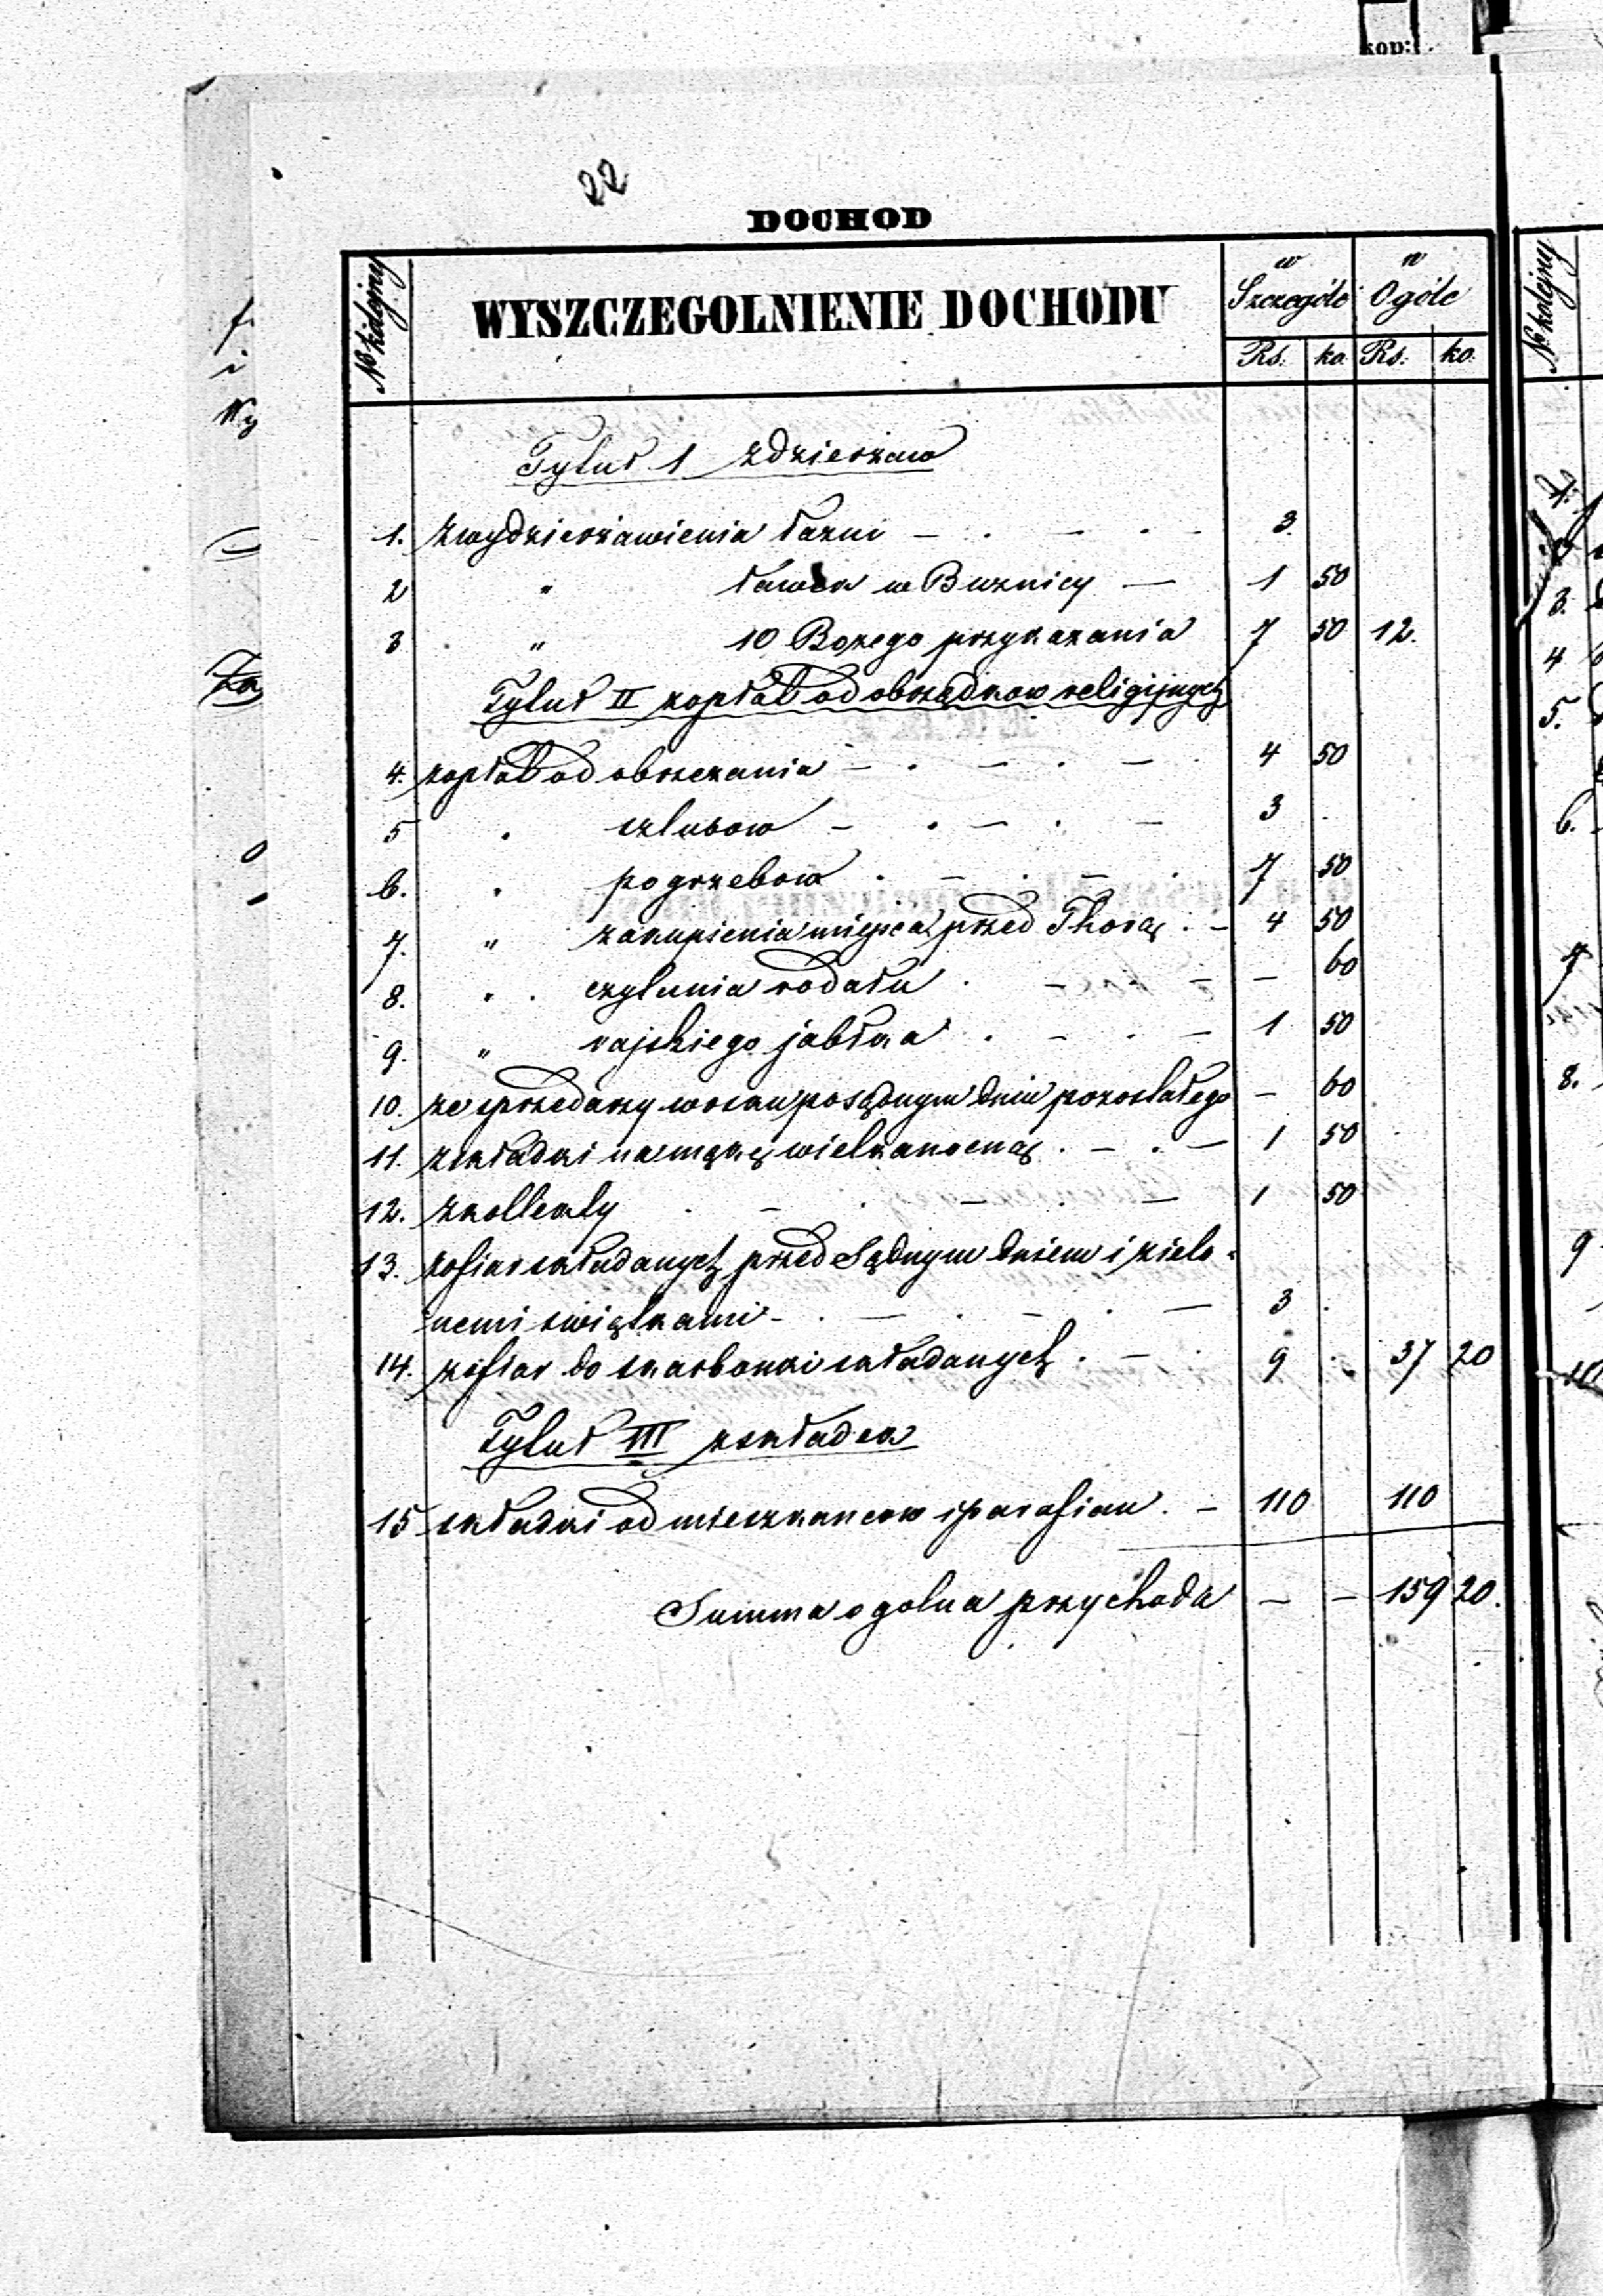 kop:
22
DOCHOD
No kolejny WYSZCZEGOLNIENIE DOCHODU w Szczególe w Ogóle
Rs. ko. Rs. ko.
Tytuł 1 z dzierzaw
1. z wydzierzawienia łazni — . — . — 3.
2 " ławek w Buznicy — 1 50
3 " 10 Bozego przykazania 7 50 12.
Tytuł II z opłat od obrządkow religijnych
4. z opłat od obrzezania — . — . — . 4 50
5 . szlubow — . — . — 3 .
6. . pogrzebow . — . — . 7 50
7. " zakupienia miejsca przed Thorą . — 4 50
8. " . czytania rodału . — — — 60
9. " rajskiego jabłka . — . — 1 50
10. ze sprzedazy wosku po sądnym dniu pozostałego — 60
11. z składki na mąkę wielkanocną . — . — 1 50
12. z kollekty . — . — . — 1 50
13. z ofiar składanych przed Sądnym dniem i zielo-
nemi swiątkami — . — . — . — 3 .
14. z ofiar do skarbonki składanych . — . 9 . 37 20
Tytuł III z składek
15 składki od mieszkancow i parafian . — 110 110
Summa ogolna przychodu — — 159 20.
No kolejny
3.
4
5.
6.
7
8.
9
10
Wy